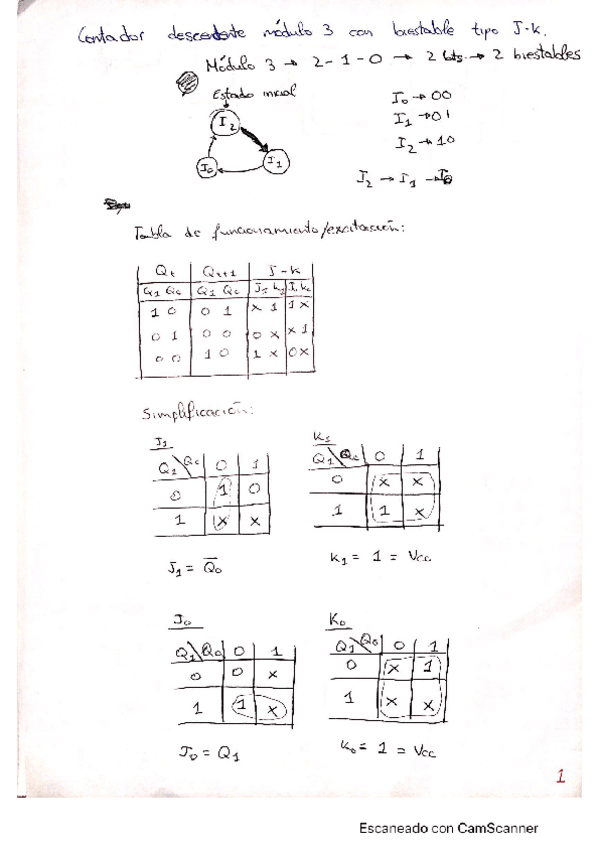 Contador descendente módulo 3 con biestable tipo J-K.
Módulo 3 → 2-1-0 → 2 bits → 2 biestables
Estado inicial
I0 → 00
I1 → 01
I2 → 10
I2
I0
I1
I2 → I1 → I0
Tabla de funcionamiento/excitación:
Qt Qt+1 J-K
Q1 Q0 Q1 Q0 J1 K1 J0 K0
1 0 0 1 x 1 1 x
0 1 0 0 0 x x 1
0 0 1 0 1 x 0 x
Simplificación:
J1
Q1\Q0 0 1
0 1 0
1 x x
J1 = Q̅0
K1
Q1\Q0 0 1
0 x x
1 1 x
K1 = 1 = Vcc
J0
Q1\Q0 0 1
0 0 x
1 1 x
J0 = Q1
K0
Q1\Q0 0 1
0 x 1
1 x x
K0 = 1 = Vcc
1
Escaneado con CamScanner